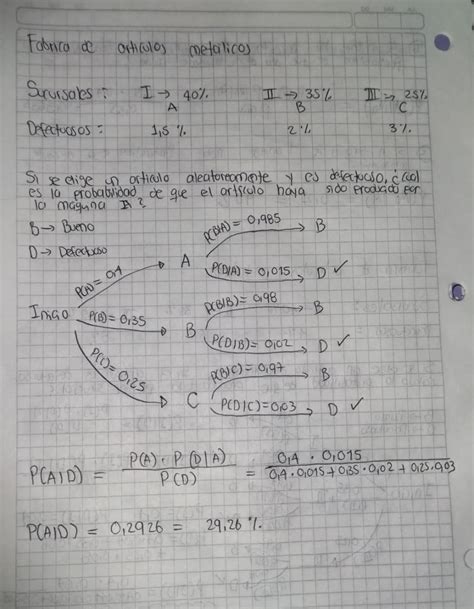 Fabrica de articulos metalicos
Sucursales: I → 40% II → 35% III → 25%
A B C
Defectuosos: 1,5% 2% 3%
Si se elige un articulo aleatoreamente y es defectuoso, ¿cual
es la probabilidad de que el artículo haya sido producido por
la maquina A?
B → Bueno
D → Defectuoso
P(B|A) = 0,985 B
P(A) = 0,4 A
P(D|A) = 0,015 D ✓
P(B|B) = 0,98 B
Inicio P(B) = 0,35 B
P(D|B) = 0,02 D ✓
P(B|C) = 0,97 B
P(C) = 0,25 C
P(D|C) = 0,03 D ✓
P(A|D) = P(A) · P(D|A) / P(D) = 0,4 · 0,015 / 0,4 · 0,015 + 0,35 · 0,02 + 0,25 · 0,03
P(A|D) = 0,2926 = 29,26%